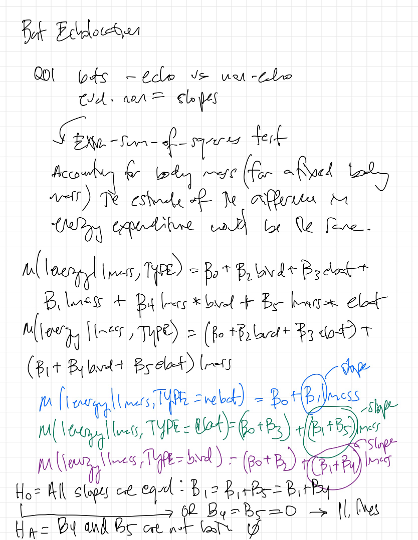 Bat Echolocation
QOI bats - echo vs non-echo
evid. non = slopes
Extra-sum-of-squares test
Accounting for body mass (for a fixed body
mass) the estimate of the difference in
energy expenditure would be the same.
μ(lenergy|lmass, TYPE) = β0 + β2 bird + β3 ebat +
β1 lmass + β4 lmass * bird + β5 lmass * ebat
μ(lenergy|lmass, TYPE) = (β0 + β2 bird + β3 ebat) +
(β1 + β4 bird + β5 ebat) lmass
slope
μ(lenergy|lmass, TYPE = nebat) = β0 + β1 lmass
slope
μ(lenergy|lmass, TYPE = ebat) = (β0 + β3) + (β1 + β5) lmass
slope
μ(lenergy|lmass, TYPE = bird) = (β0 + β2) + (β1 + β4) lmass
H0 = All slopes are equal : β1 = β1 + β5 = β1 + β4
or β4 = β5 = 0 → // lines
HA = β4 and β5 are not both φ